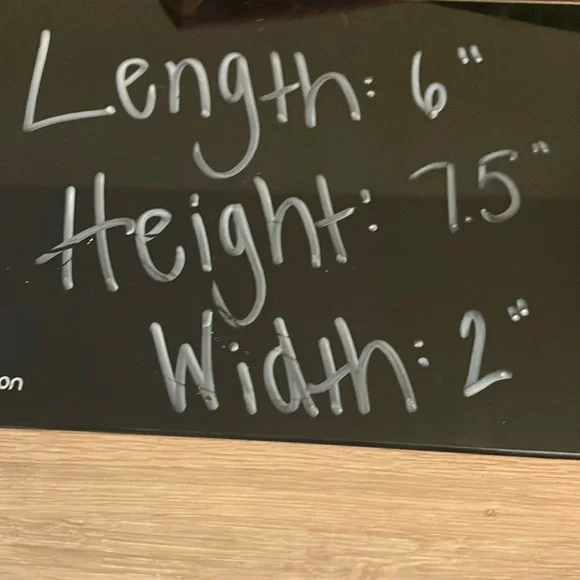 Length: 6"
Height: 7.5"
Width: 2"
on